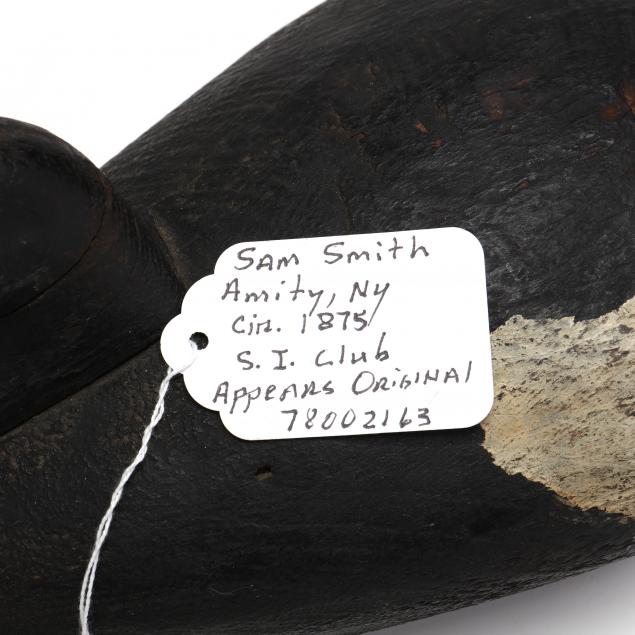 Sam Smith
Amity, Ny
Cir. 1875
S. I. Club
Appears Original
78002163